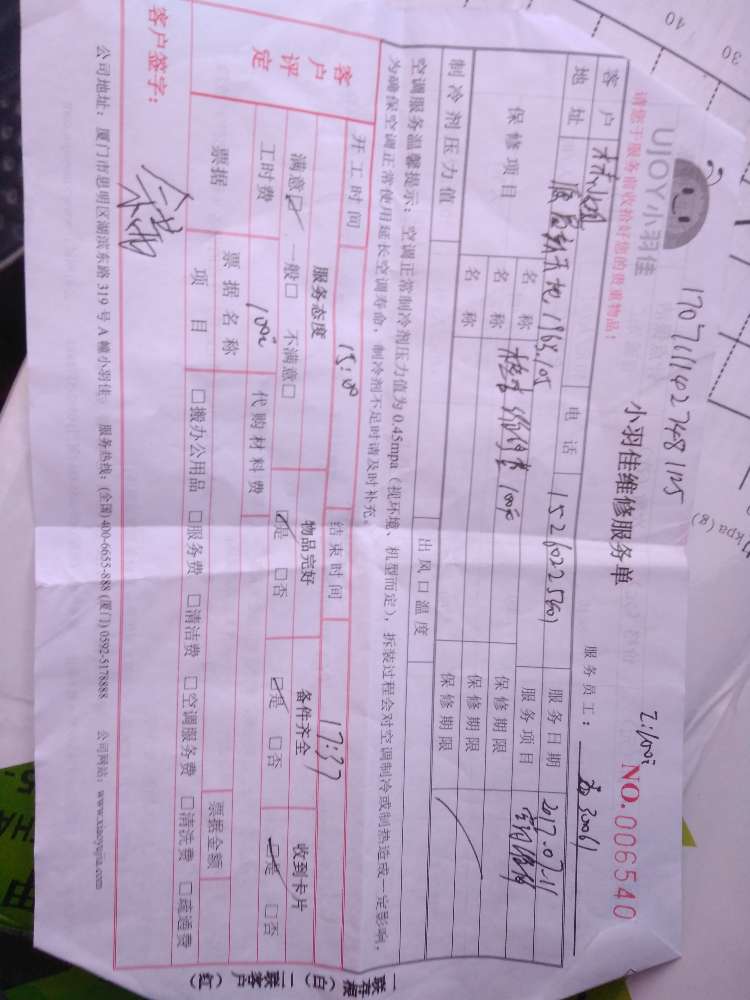 1707111427481125
UJOY小羽佳
小羽佳维修服务单
NO.006540
请您于服务前收拾好您的贵重物品!
服务员工:
客户 林小姐 电话 15260225601 服务日期 2017.07.11
地址 1964.105 服务项目
保修项目 名称 维修 100元 保修期限
名称 保修期限
名称 保修期限
制冷剂压力值 出风口温度
空调服务温馨提示:空调正常制冷剂压力值为0.45mpa(视环境、机型而定),拆装过程会对空调制冷或制热造成一定影响,
为确保空调正常使用延长空调寿命,制冷剂不足时请及时补充。
开工时间 15:00 结束时间 17:37
客户评定 服务态度 物品完好 备件齐全 收到卡片
满意☑ 一般□ 不满意□ ☑是 □否 ☑是 □否 ☑是 □否
工时费 100元 代购材料费
票据 票据名称 票据金额
项目 □搬办公用品 □服务费 □清洁费 □空调服务费 □清洗费 □疏通费
客户签字:
公司地址:厦门市思明区湖滨东路319号A幢小羽佳 服务热线:(全国)400-6655-888 (厦门)0592-5178888 公司网站:www.xiaoyujia.com
一联存根(白) 二联客户(红)
40
30
kpa (g)